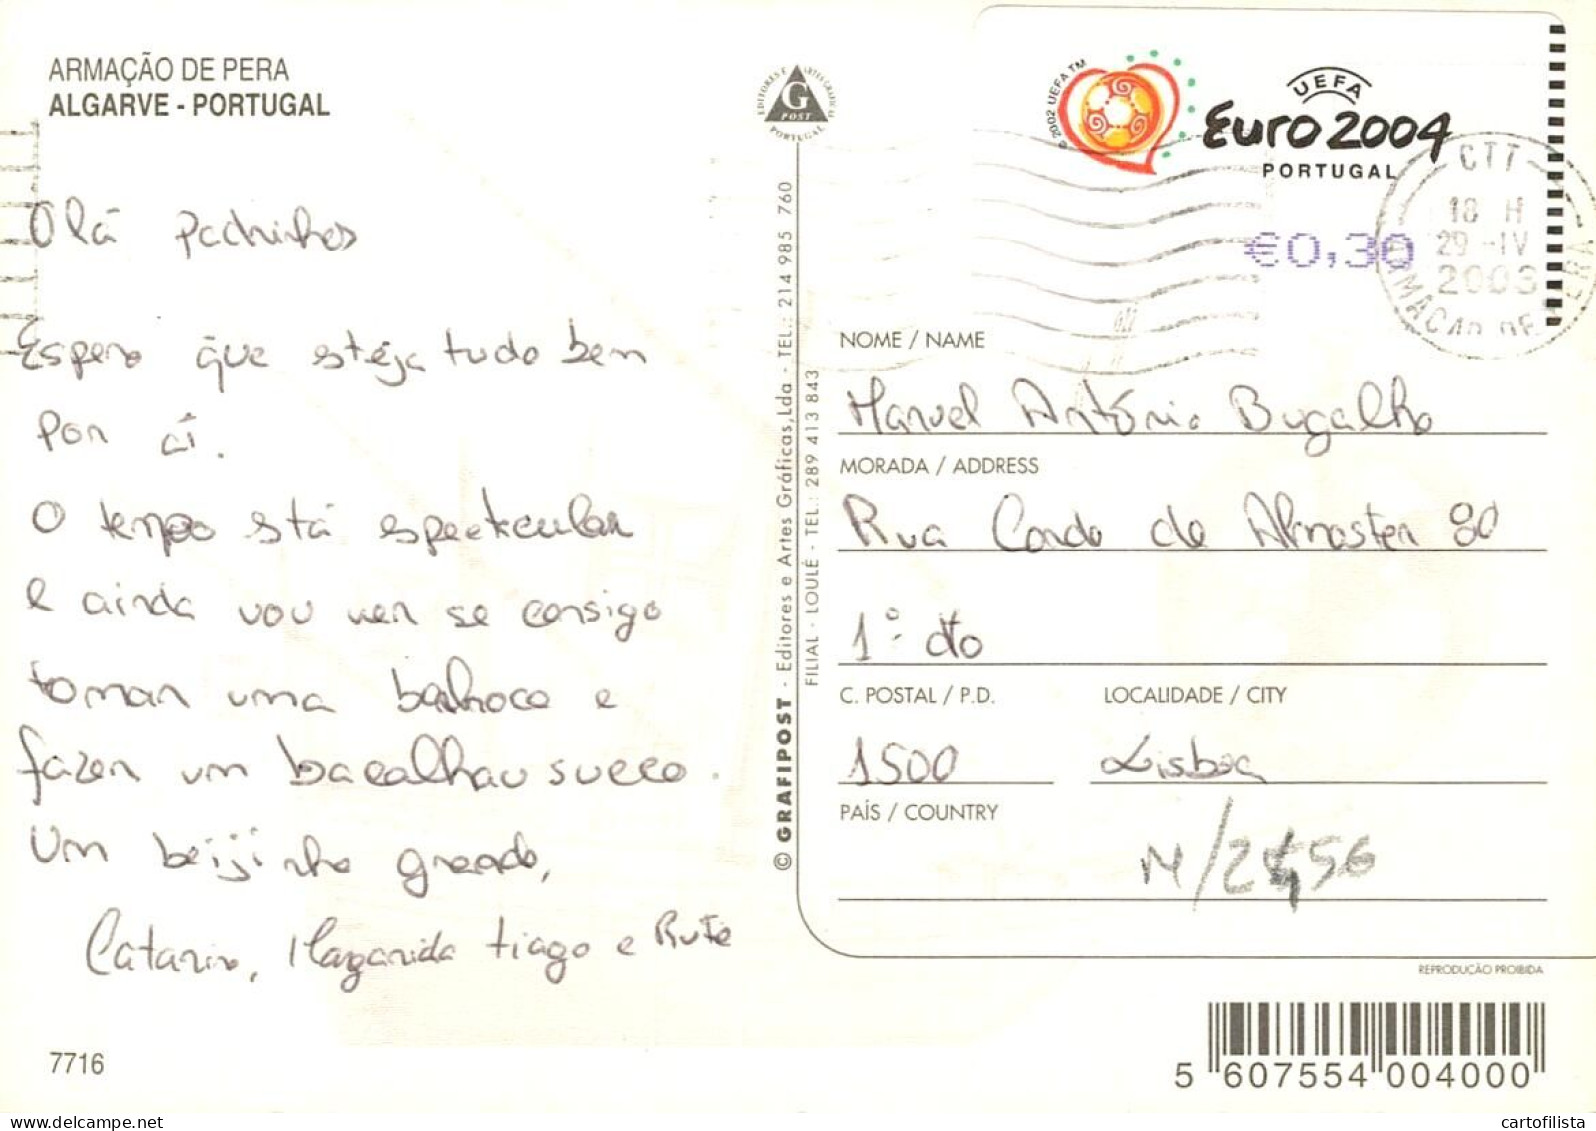 ARMAÇÃO DE PERA
ALGARVE - PORTUGAL
Olá padrinhos
Espero que esteja tudo bem
por aí.
O tempo está espectacular
e ainda vou ver se consigo
tomar uma banhoca e
fazer um bacalhau sueco.
Um beijinho grande,
Catarina, Margarida Tiago e Rute
7716
EDITORES E ARTES GRÁFICAS
G
POST
PORTUGAL
© GRAFIPOST - Editores e Artes Gráficas,Lda - TEL.: 214 985 760
FILIAL - LOULÉ - TEL.: 289 413 843
© 2002 UEFA TM
UEFA
Euro 2004
PORTUGAL
€0,30
CTT
18 H
29 -IV
2003
ARMACAO DE PERA
NOME / NAME
Manuel António Bugalho
MORADA / ADDRESS
Rua Conde de Almoster 80
1º dto
C. POSTAL / P.D.
LOCALIDADE / CITY
1500
Lisboa
PAÍS / COUNTRY
REPRODUÇÃO PROIBIDA
5 607554 004000
cartofilista